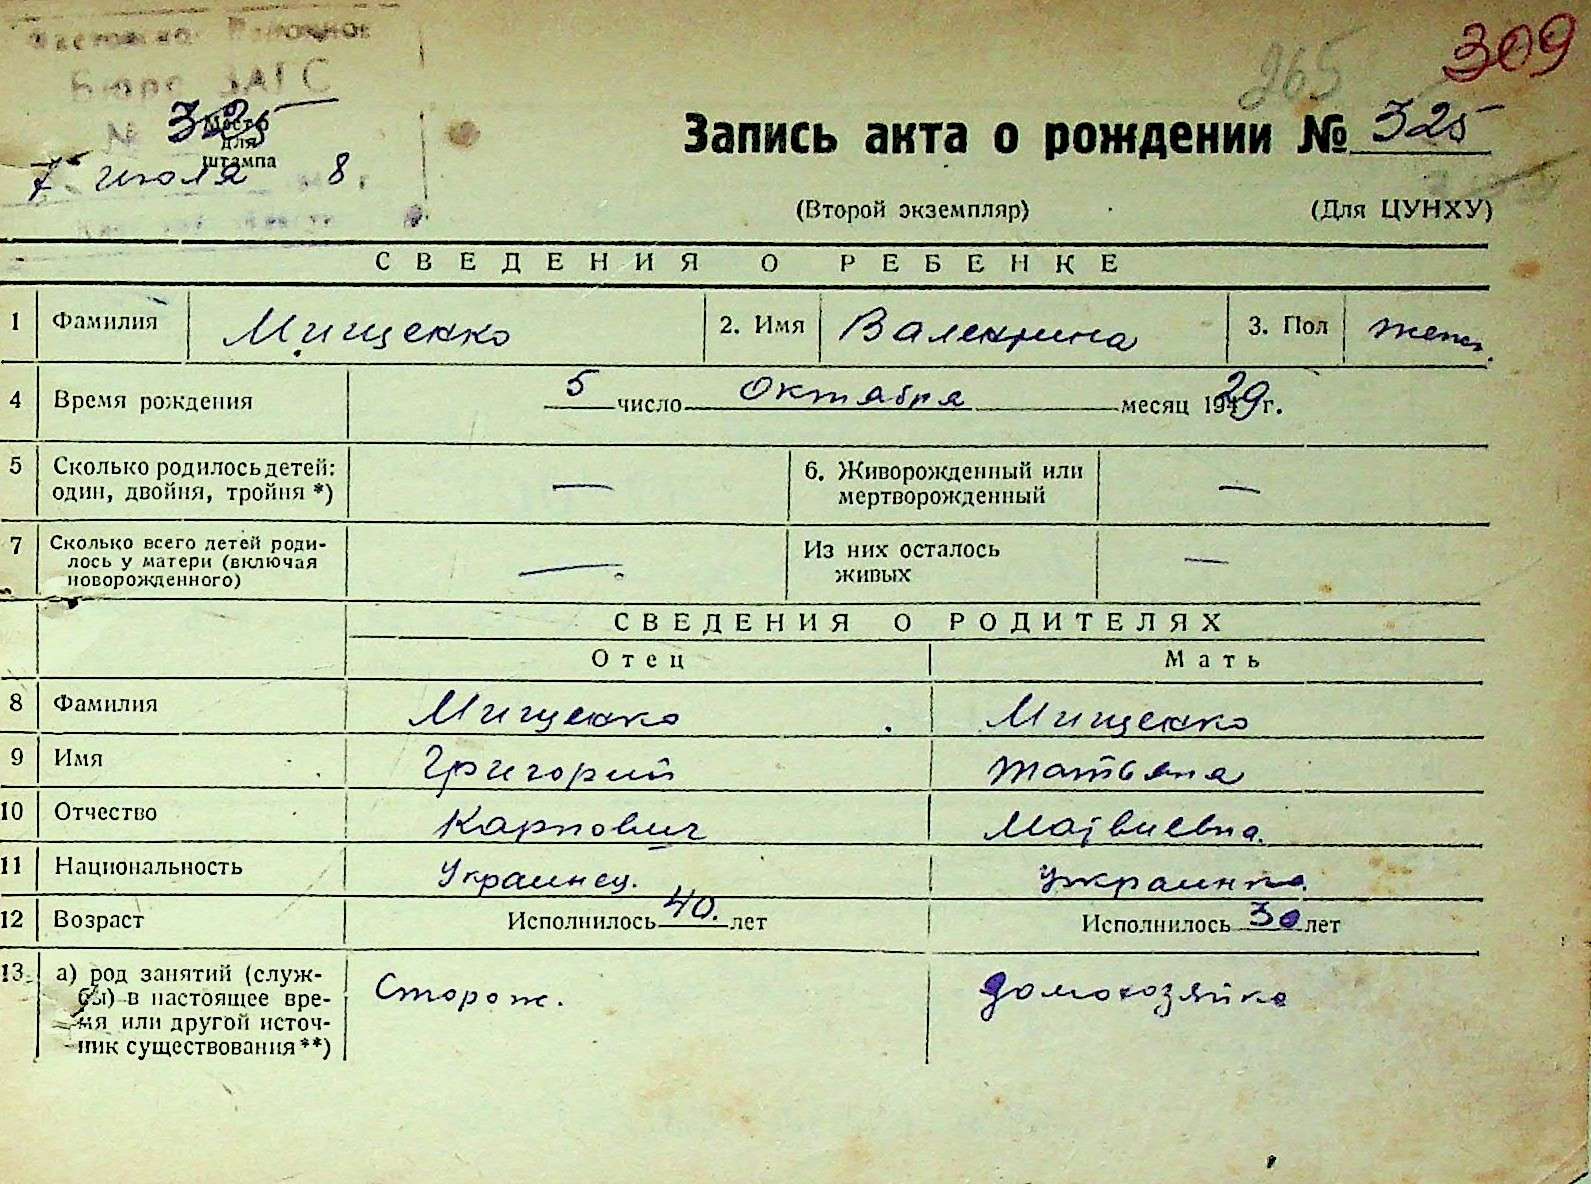 Бюро ЗАГС
№ 325
Место для штампа
7 июля 8
265
309
Запись акта о рождении № 325
(Второй экземпляр)
(Для ЦУНХУ)
СВЕДЕНИЯ О РЕБЕНКЕ
1 Фамилия Мищенко 2. Имя Валентина 3. Пол женск.
4 Время рождения 5 число Октября месяц 1929 г.
5 Сколько родилось детей: — 6. Живорожденный или —
один, двойня, тройня *) мертворожденный
7 Сколько всего детей роди- — Из них осталось —
лось у матери (включая живых
новорожденного)
СВЕДЕНИЯ О РОДИТЕЛЯХ
Отец Мать
8 Фамилия Мищенко Мищенко
9 Имя Григорий Татьяна
10 Отчество Карпович Матвиевна.
11 Национальность Украинец. Украинка.
12 Возраст Исполнилось 40. лет Исполнилось 30 лет
13. а) род занятий (служ- Сторож. домохозяйка
бы) в настоящее вре-
мя или другой источ-
ник существования **)